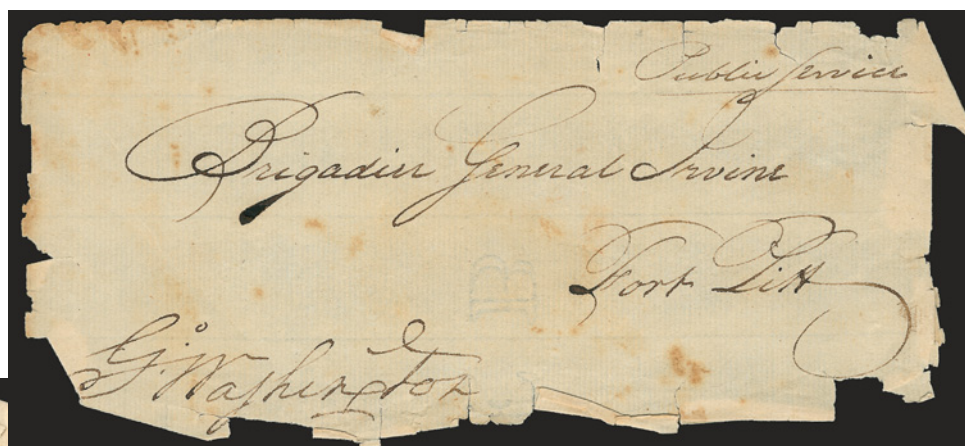 Public Service
Brigadier General Irvine
Fort Pitt
Go: Washington